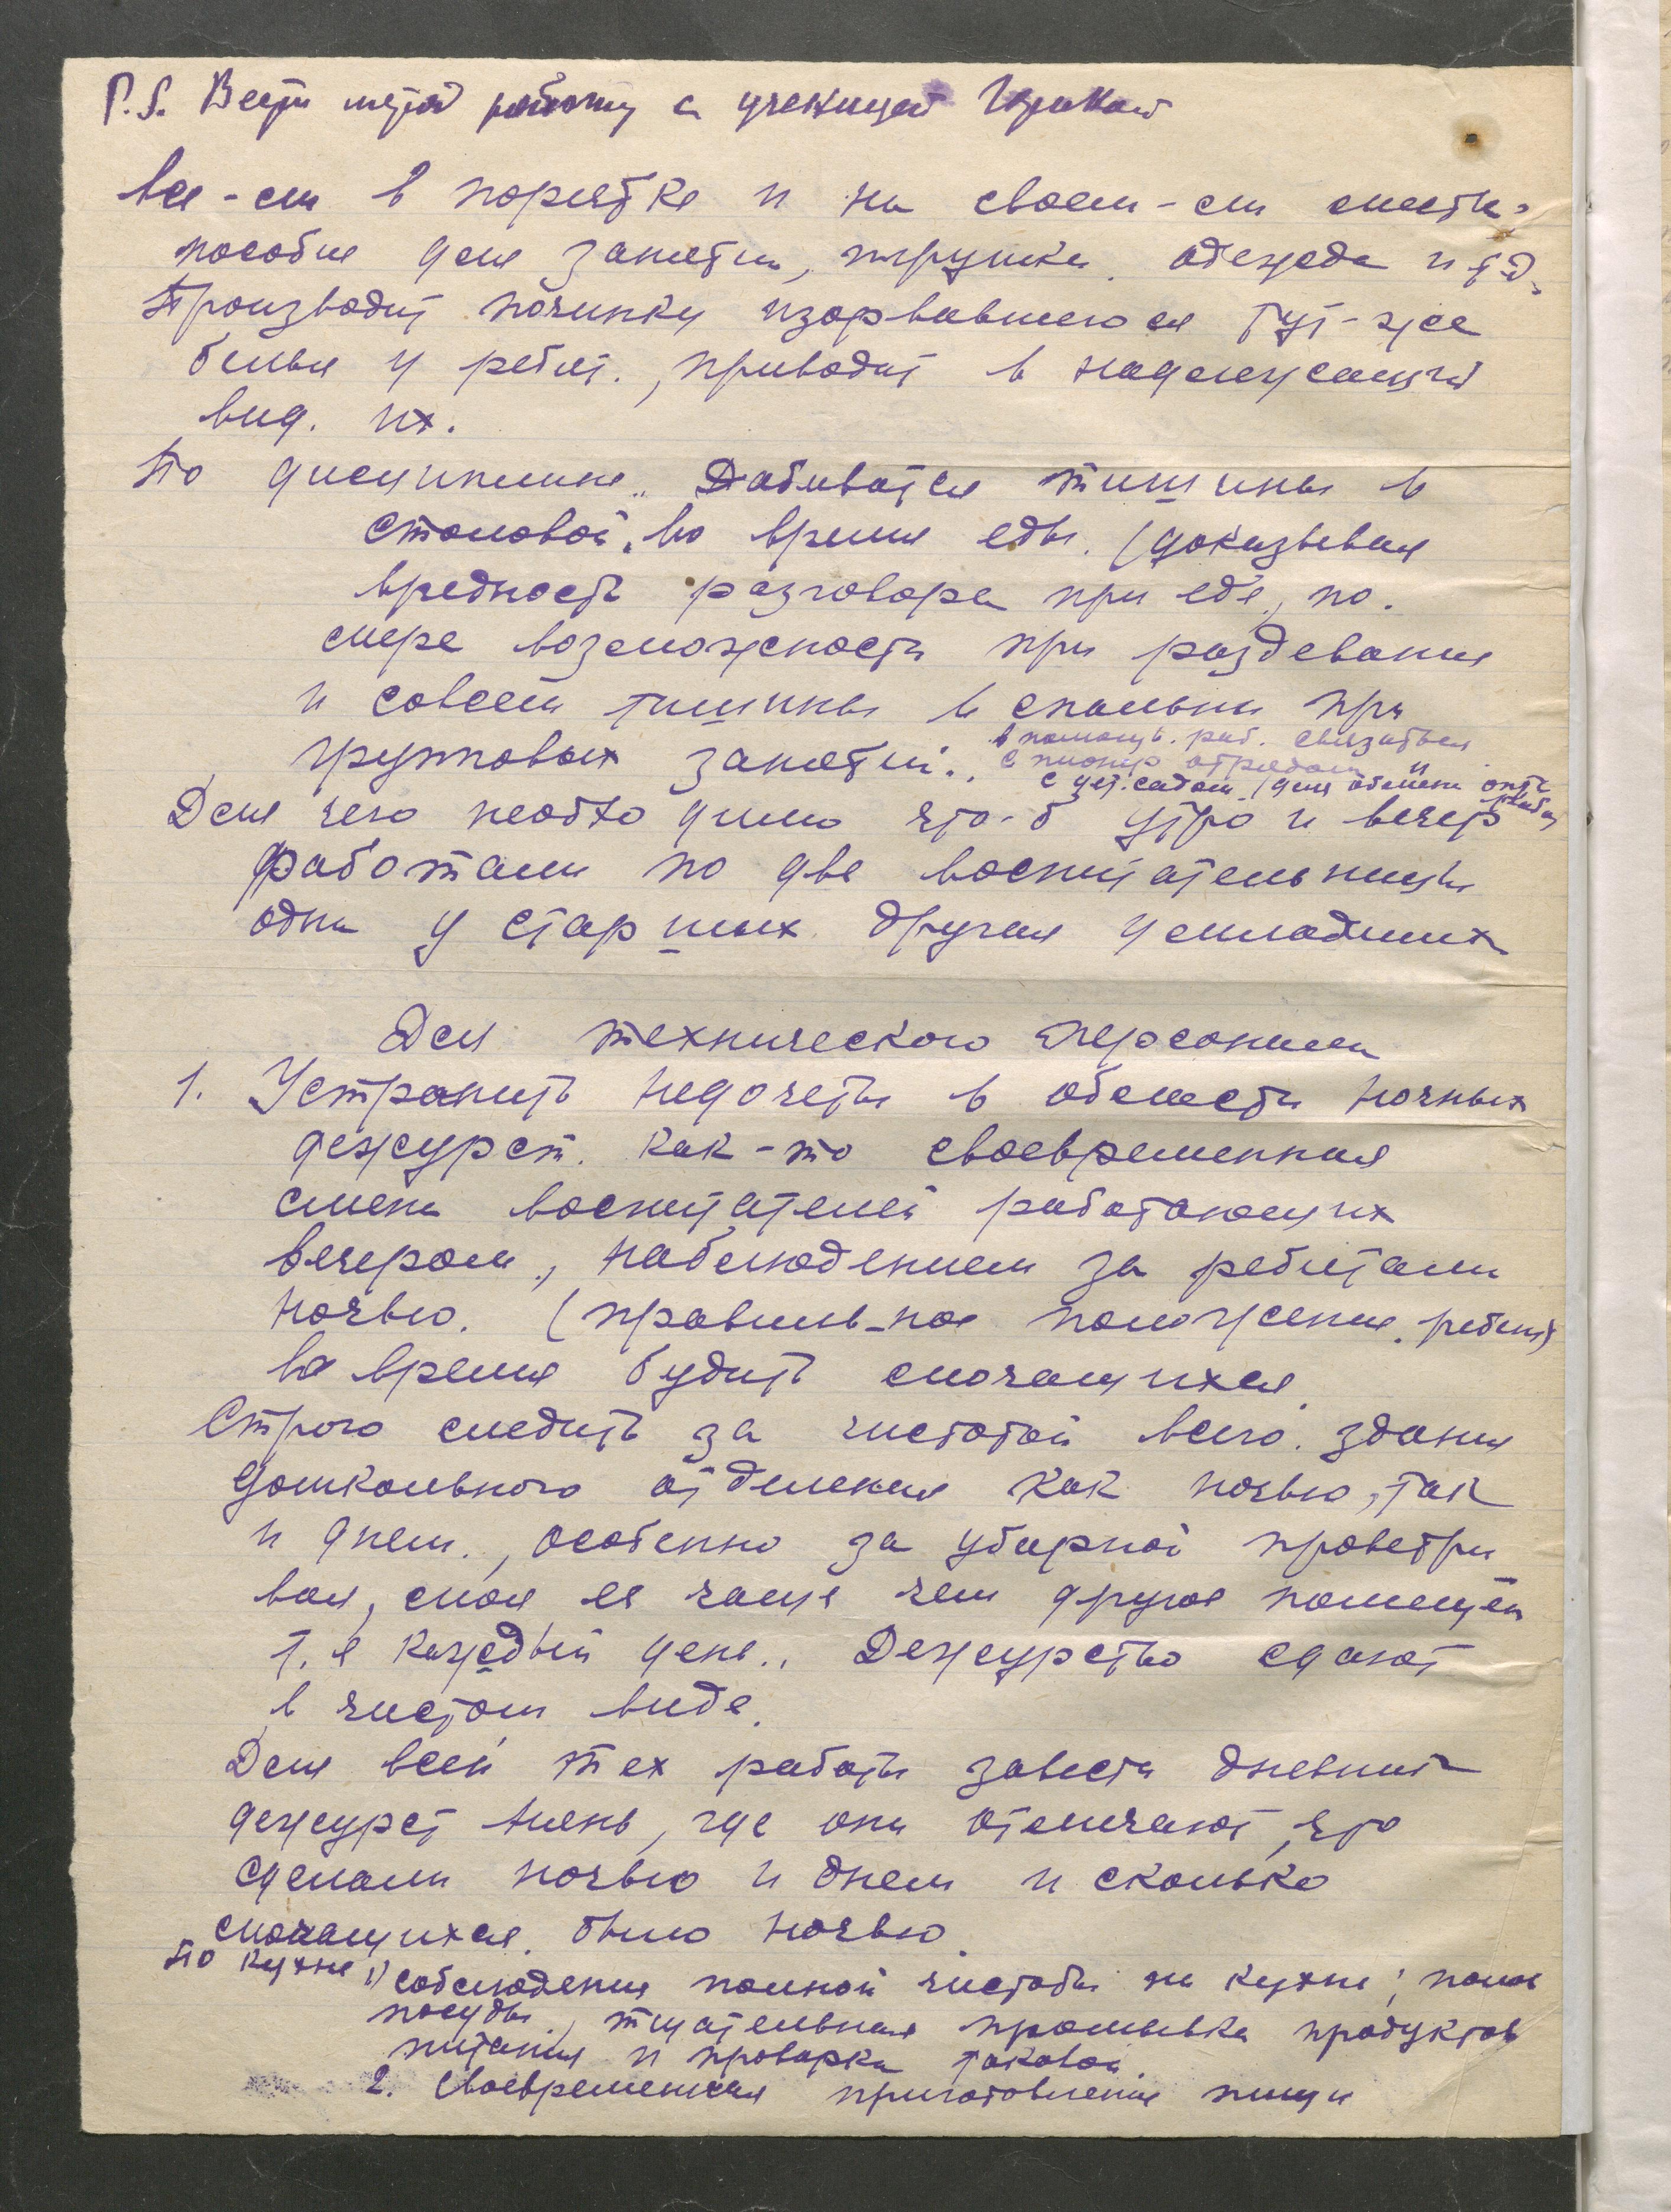 P.S. Вести метод работу с ученицей
все-ли в порядке и на своем-ли месте:
пособие для занятия, игрушки, одежда и т.д.
Производит починку изорвавшегося тут-же
белья у ребят., приводит в надлежащий
вид. их.
По дисциплине.. Добиватся тишины в
столовой. во время еды. (доказывая
вредность разговора при еде, по.
мере возможности при раздевании
и совсем тишины в спальни при
групповых занятий..
в помощь. раб. связаться
с пионер отрядом
с дет. садом. (для обмена опыт
работы
Для чего необходимо что-б утро и вечер
работали по две воспитательницы
одна у старших другая у младших
Для технического персонала
1. Устранить недочеты в области ночных
дежурст. как-то своевременная
смена воспитателей работающих
вечером, наблюдением за ребятами
ночью. (правиль-ное положение. ребенка
во время будить мочащихся.
Строго следить за чистотой всего. здания
дошкольного отделения как ночью, так
и днем., особенно за уборной проветри
вая, моя ее чаще чем другое помещен
т.е каждый день.. Дежурство сдают
в чистом виде.
Для всей тех работы завести дневник
дежурст нянь, где они отмечают, что
сделали ночью и днем и сколько
мочащихся. было ночью.
По кухне 1) соблюдения полной чистоты на кухне;
посуды., тщательная промывка продуктов
питания и проварка таковой.
2. Своевременная приготовления пищи